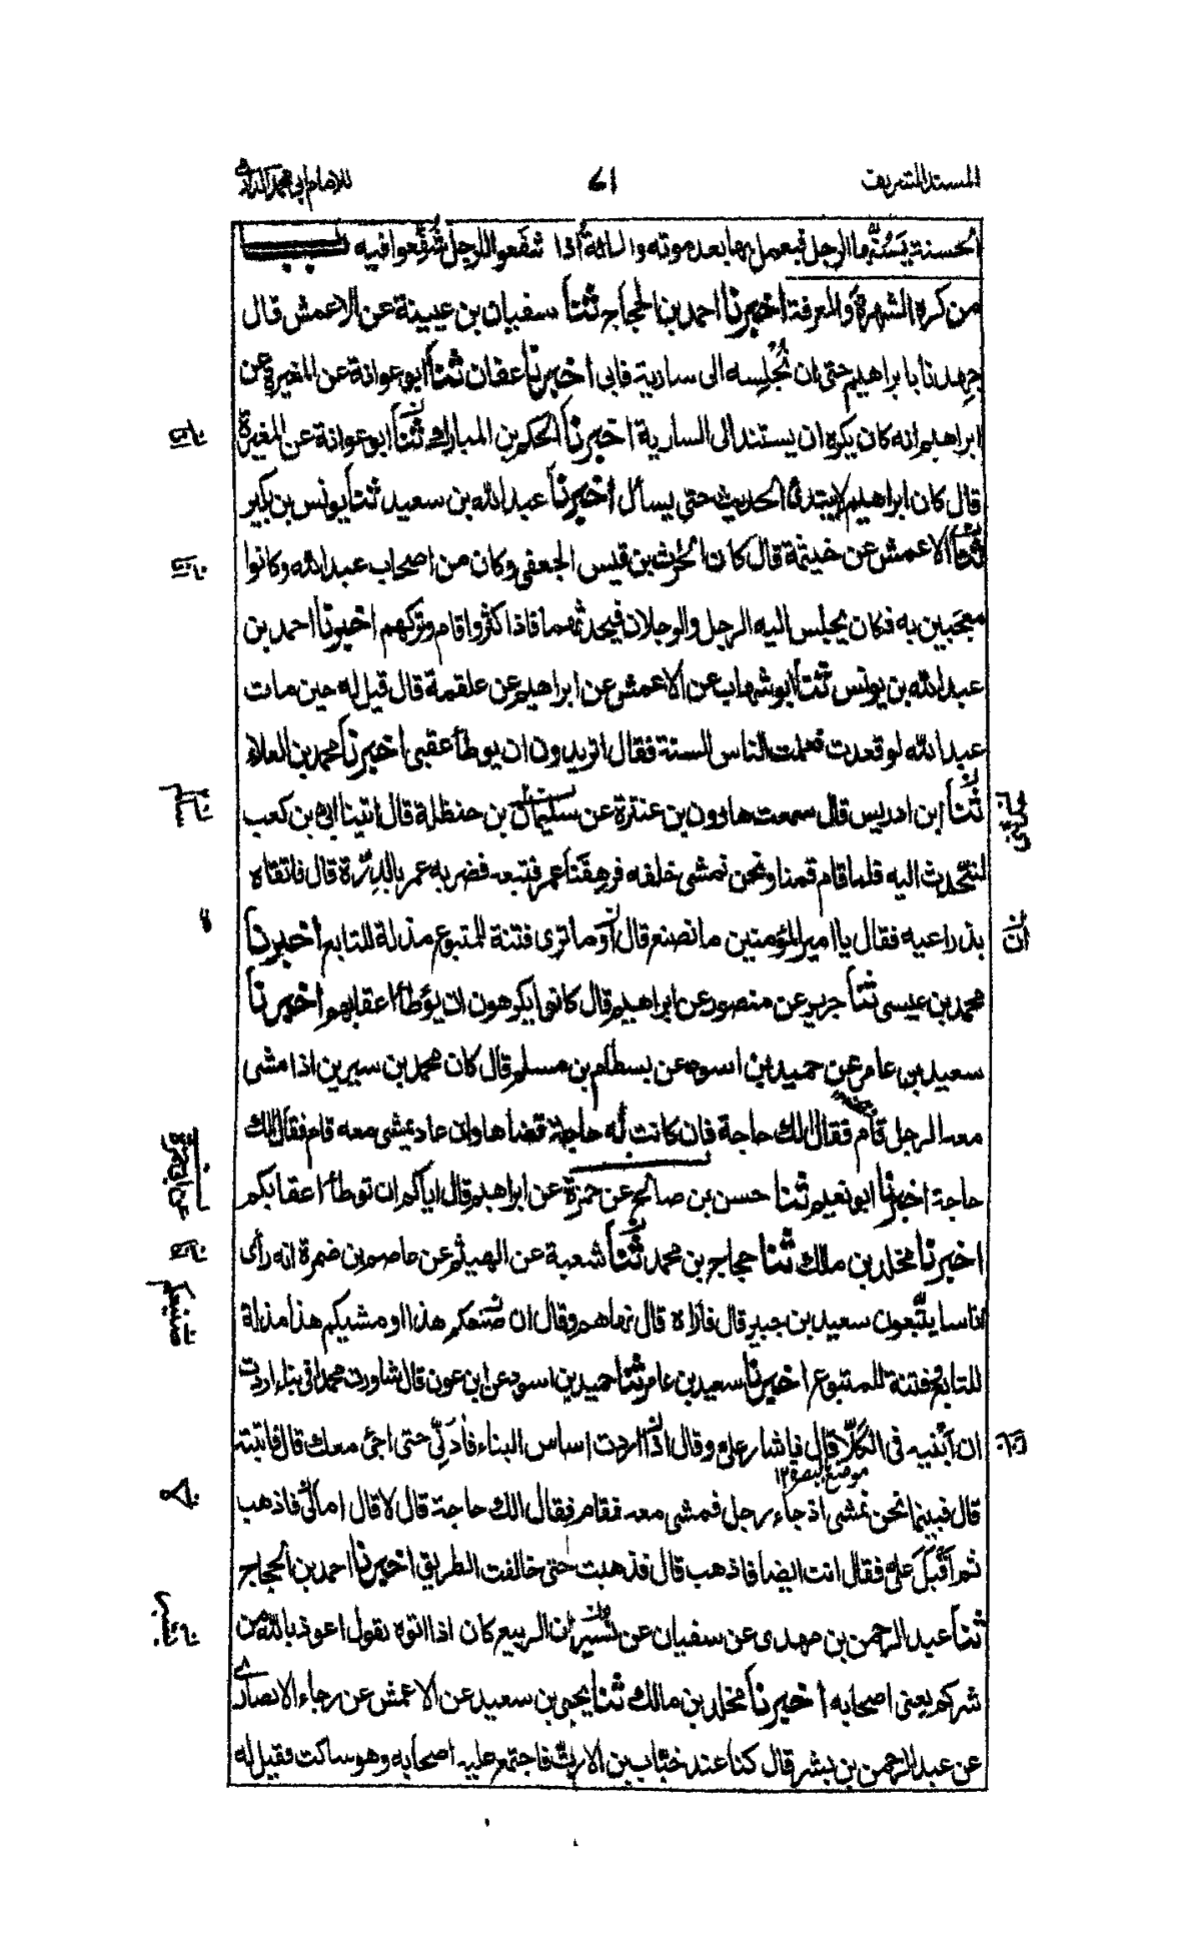 المسند الشريف ٧١ للامام ابى محمد الدارمى
الحسنة يَسُنُّها الرجل فيعمل بها بعد موته والمائة اذا شفعوا للرجل شُفِّعوا فيه باب
من كره الشهرة والمعرفة اخبرنا احمد بن الحجاج ثنا سفيان بن عيينة عن الاعمش قال
جهدنا بابراهيم حتى ان نُجْلِسه الى سارية فابى اخبرنا عفان ثنا ابو عوانة عن المغيرة عن
ابراهيم انه كان يكره ان يستند الى السارية اخبرنا الحكم بن المبارك ثنا ابو عوانة عن المغيرة
قال كان ابراهيم لا يبتدئ الحديث حتى يسأل اخبرنا عبد الله بن سعيد ثنا يونس بن بكير
ثنا الاعمش عن خيثمة قال كان الحرث بن قيس الجعفى وكان من اصحاب عبد الله وكانوا
معجبين به فكان يجلس اليه الرجل والرجلان فيحدثهما فاذا كثروا قام وتركهم اخبرنا احمد بن
عبد الله بن يونس ثنا ابو شهاب عن الاعمش عن ابراهيم عن علقمة قال قيل له حين مات
عبد الله لو قعدت فعلمت الناس السنة فقال اتريدون ان يوطأ عقبى اخبرنا محمد بن العلاء
ثنا ابن ادريس قال سمعت هارون بن عنترة عن سليمان بن حنظلة قال اتينا ابى بن كعب
لنتحدث اليه فلما قام قمنا ونحن نمشى خلفه فرهقنا عمر فتبعه فضربه عمر بالدِرَّة قال فاتقاه
بذراعيه فقال يا امير المؤمنين ما نصنع قال أوما ترى فتنة للمتبوع مذلة للتابع اخبرنا
محمد بن عيسى ثنا جرير عن منصور عن ابراهيم قال كانوا يكرهون ان يؤطأ اعقابهم اخبرنا
سعيد بن عامر عن حميد بن اسود عن بسطام بن مسلم قال كان محمد بن سيرين اذا مشى
معه الرجل قام فقال الك حاجة فان كانت له حاجة قضاها وان عاد يمشى معه قام فقال الك
حاجة اخبرنا ابو نعيم ثنا حسن بن صالح عن حمزة عن ابراهيم قال اياكم ان توطأ اعقابكم
اخبرنا مخلد بن ملك ثنا حجاج بن محمد ثنا شعبة عن الهيثم عن عاصم بن ضمرة انه رأى
اناسا يتّبعون سعيد بن جبير قال فأراه قال نهاهم وقال ان صنعكم هذا او مشيكم هذا مذلة
للتابع فتنة للمتبوع اخبرنا سعيد بن عامر ثنا حميد بن اسود عن ابن عون قال شاورت محمدا فى بناء اردت
ان أبنيه فى الكلّا قال فاشار على وقال اذا اردت اساس البناء فأذنّى حتى اجئ معك قال فاتيته
موضع بالبصرة ١٢
قال فبينما نحن نمشى اذ جاء رجل فمشى معه فقام فقال الك حاجة قال لا قال اما لا فاذهب
ثم أقبَلَ علىّ فقال انت ايضا فاذهب قال فذهبت حتى خالفت الطريق اخبرنا احمد بن الحجاج
ثنا عبد الرحمن بن مهدى عن سفيان عن نُسَير ان الربيع كان اذا اتوه يقول اعوذ بالله من
شركم يعنى اصحابه اخبرنا مخلد بن مالك ثنا يحيى بن سعيد عن الاعمش عن رجاء الانصارى
عن عبد الرحمن بن بشر قال كنا عند خبّاب بن الارت فاجتمع عليه اصحابه وهو ساكت فقيل له